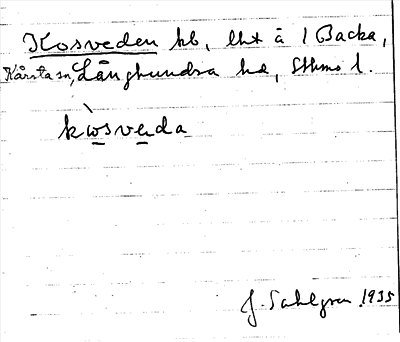 Kosveden hb, lht å 1 Backa,
Kårsta sn, Långhundra hd, Sthms l.
kwsvenda
J. Sahlgren 1935